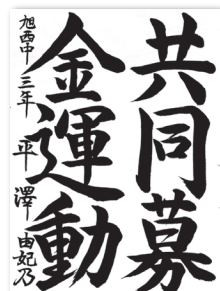 共同募
金運動
旭西中三年 平澤由妃乃